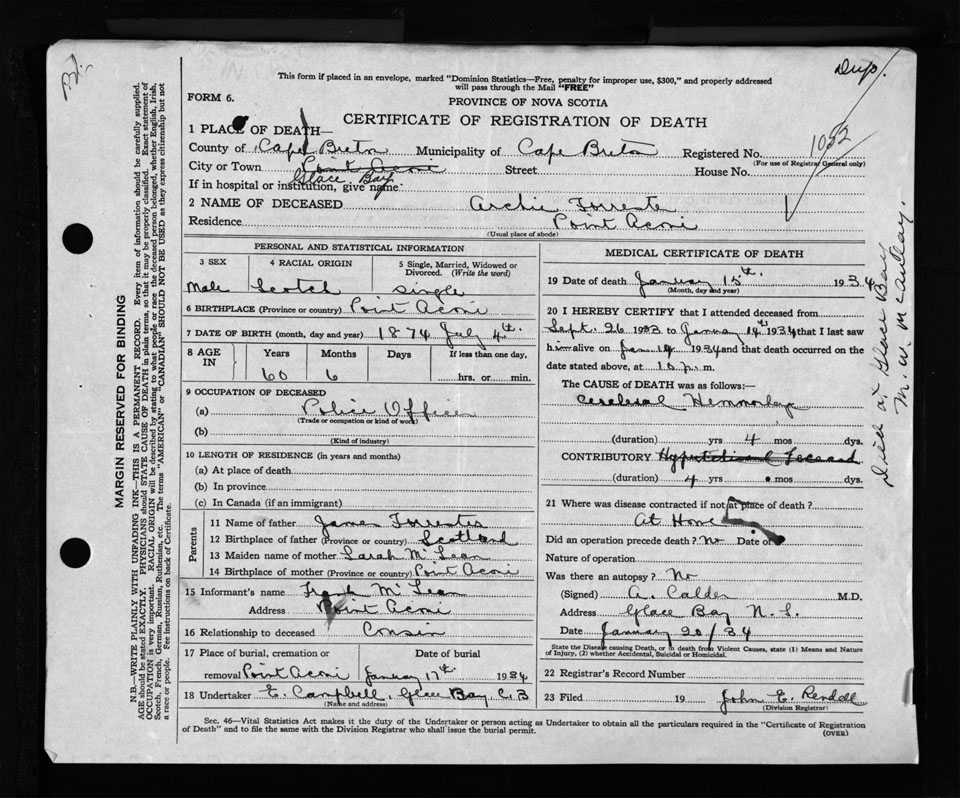 This form if placed in an envelope, marked "Dominion Statistics—Free, penalty for improper use, $300," and properly addressed
will pass through the Mail "FREE"
Dup.
FORM 6.
PROVINCE OF NOVA SCOTIA
CERTIFICATE OF REGISTRATION OF DEATH
1032
1 PLACE OF DEATH—
County of Cape Breton Municipality of Cape Breton Registered No.
(For use of Registrar General only)
City or Town Point Aconi Street House No.
Glace Bay
If in hospital or institution, give name
2 NAME OF DECEASED Archie Forrester
Residence Point Aconi
(Usual place of abode)
PERSONAL AND STATISTICAL INFORMATION
3 SEX 4 RACIAL ORIGIN 5 Single, Married, Widowed or Divorced. (Write the word)
Male Scotch Single
6 BIRTHPLACE (Province or country) Point Aconi
7 DATE OF BIRTH (month, day and year) 1874 July 4th.
8 AGE IN Years Months Days If less than one day,
60 6 hrs. or min.
9 OCCUPATION OF DECEASED
(a) Police Officer
(Trade or occupation or kind of work)
(b)
(Kind of industry)
10 LENGTH OF RESIDENCE (in years and months)
(a) At place of death
(b) In province
(c) In Canada (if an immigrant)
Parents
11 Name of father James Forrester
12 Birthplace of father (Province or country) Scotland
13 Maiden name of mother Sarah McLean
14 Birthplace of mother (Province or country) Point Aconi
15 Informant's name Frank McLean
Address Point Aconi
16 Relationship to deceased Cousin
17 Place of burial, cremation or Date of burial
removal Point Aconi January 17th 1934
18 Undertaker E. Campbell, Glace Bay, C.B
(Name and address)
MEDICAL CERTIFICATE OF DEATH
19 Date of death January 15th. 1934
(Month, day and year)
20 I HEREBY CERTIFY that I attended deceased from
Sept. 26 1933 to January 14th 1934 that I last saw
him alive on Jan 14 1934 and that death occurred on the
date stated above, at 10 p.m.
The CAUSE of DEATH was as follows:
Cerebral Hemmorhage
(duration) yrs 4 mos dys.
CONTRIBUTORY
(duration) 4 yrs mos dys.
21 Where was disease contracted if not at place of death?
At Home
Did an operation precede death? No Date of
Nature of operation
Was there an autopsy? No
(Signed) A. Calder M.D.
Address Glace Bay N.S.
Date January 20/34
State the Disease causing Death, or in death from Violent Causes, state (1) Means and Nature
of Injury, (2) whether Accidental, Suicidal or Homicidal.
22 Registrar's Record Number
23 Filed 19 John E. Rendell
(Division Registrar)
Sec. 46—Vital Statistics Act makes it the duty of the Undertaker or person acting as Undertaker to obtain all the particulars required in the "Certificate of Registration
of Death" and to file the same with the Division Registrar who shall issue the burial permit.
(OVER)
MARGIN RESERVED FOR BINDING
N.B.—WRITE PLAINLY WITH UNFADING INK—THIS IS A PERMANENT RECORD. Every item of information should be carefully supplied.
AGE should be stated EXACTLY. PHYSICIANS should STATE CAUSE OF DEATH in plain terms, so that it may be properly classified. Exact statement of
OCCUPATION is very important. RACIAL ORIGIN will be described by stating to what people or race the deceased person belonged, whether English, Irish,
Scotch, French, German, Russian, Ruthenian, etc. The terms "AMERICAN" or "CANADIAN" SHOULD NOT BE USED as they express citizenship but not
a race or people. See instructions on back of Certificate.
Died at Glace Bay
M. W. McAulay.